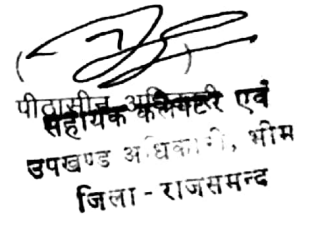 ( )
पीठासीन अधिकारी
सहायक कलेक्टर एवं
उपखण्ड अधिकारी, भीम
जिला - राजसमन्द